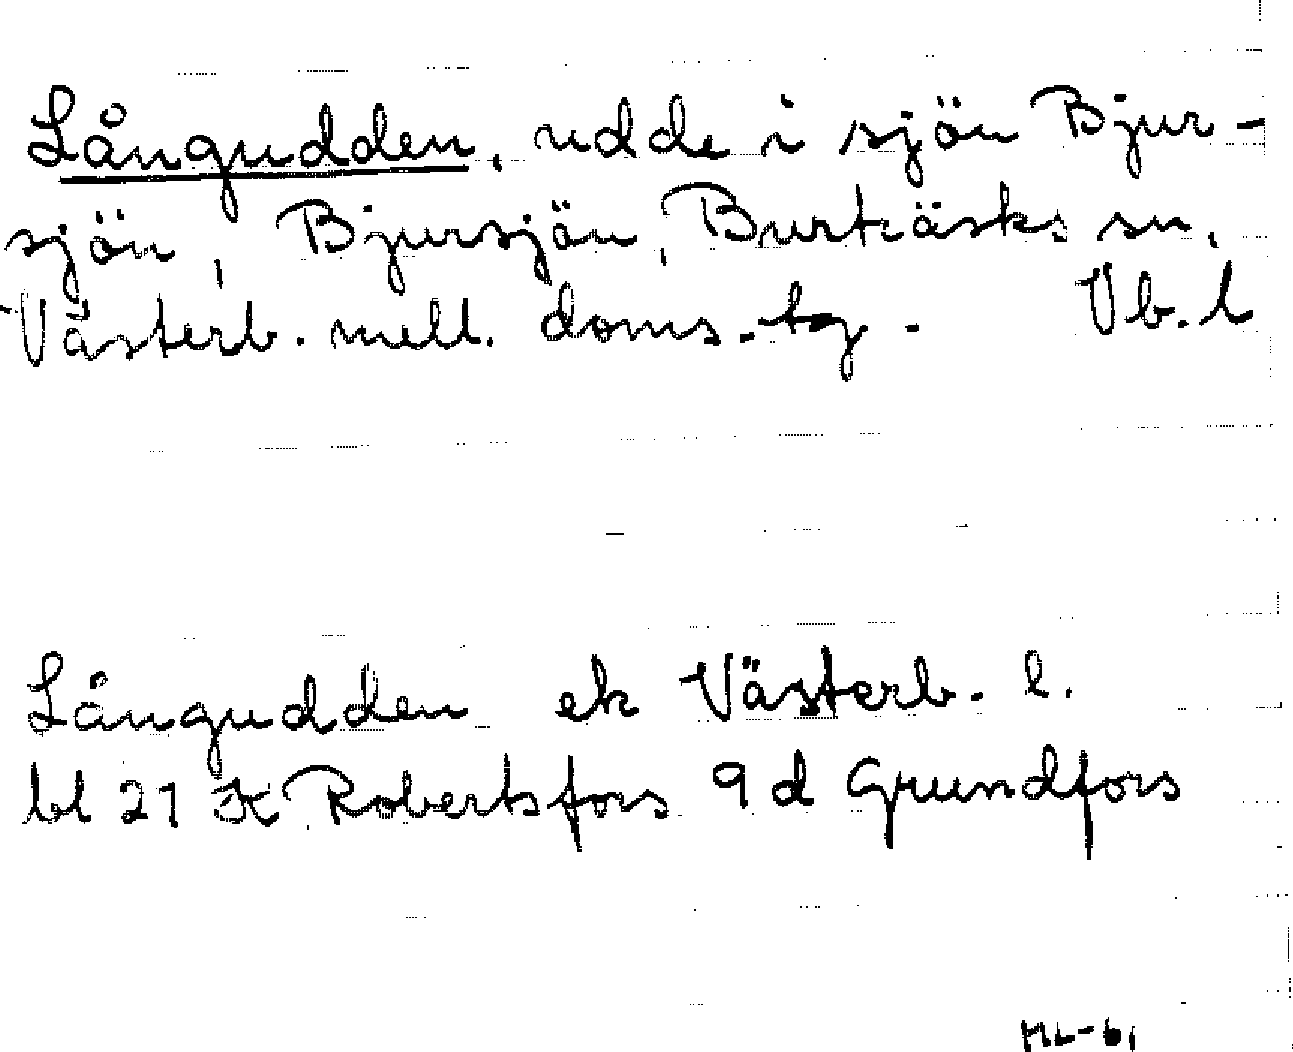 Långudden, udde i sjön Bjur-
sjön, Bjursjön, Burträsks sn,
Västerb. mell. doms.-tg. Vb. l
Långudden ek Västerb. l.
bl 21 K Robertsfors 9 d Grundfors
ML-61